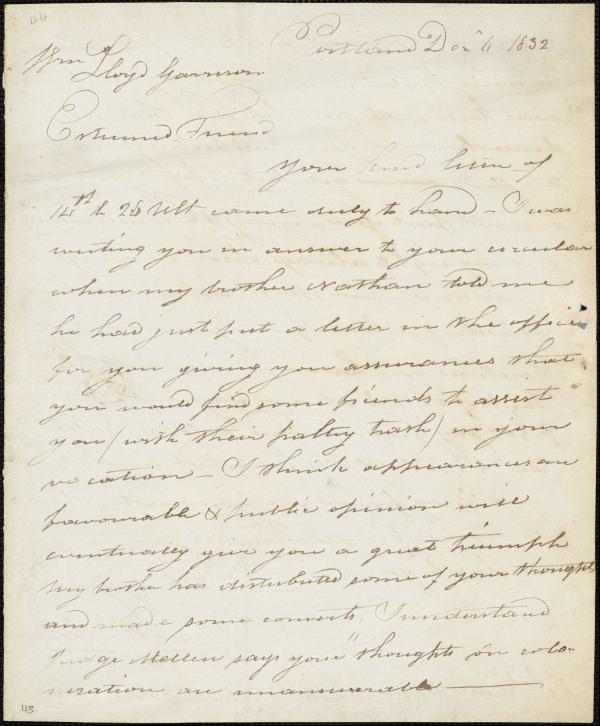 44
Portland Dec 6 1832
Wm Lloyd Garrison
Esteemed Friend
Your kind letter of
14th & 28 Ult came duly to hand – I was
writing you in answer to your circular
when my brother Nathan told me
he had just put a letter in the office
for you giving you assurances that
you would find some friends to assist
you (with their paltry trash) in your
vocation – I think appearances are
favourable & public opinion will
eventually give you a great triumph
My brother has distributed some of your thoughts
and made some converts. I understand
Judge Mellen says your "thoughts on colo-
nization are unanswerable —
43